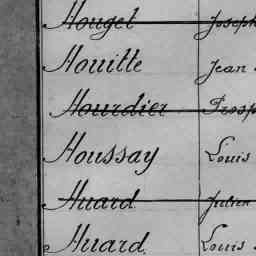 Houget Joseph
Houitte Jean
Hourdier Prosp
Houssay Louis
Huard Julien
Huard Louis